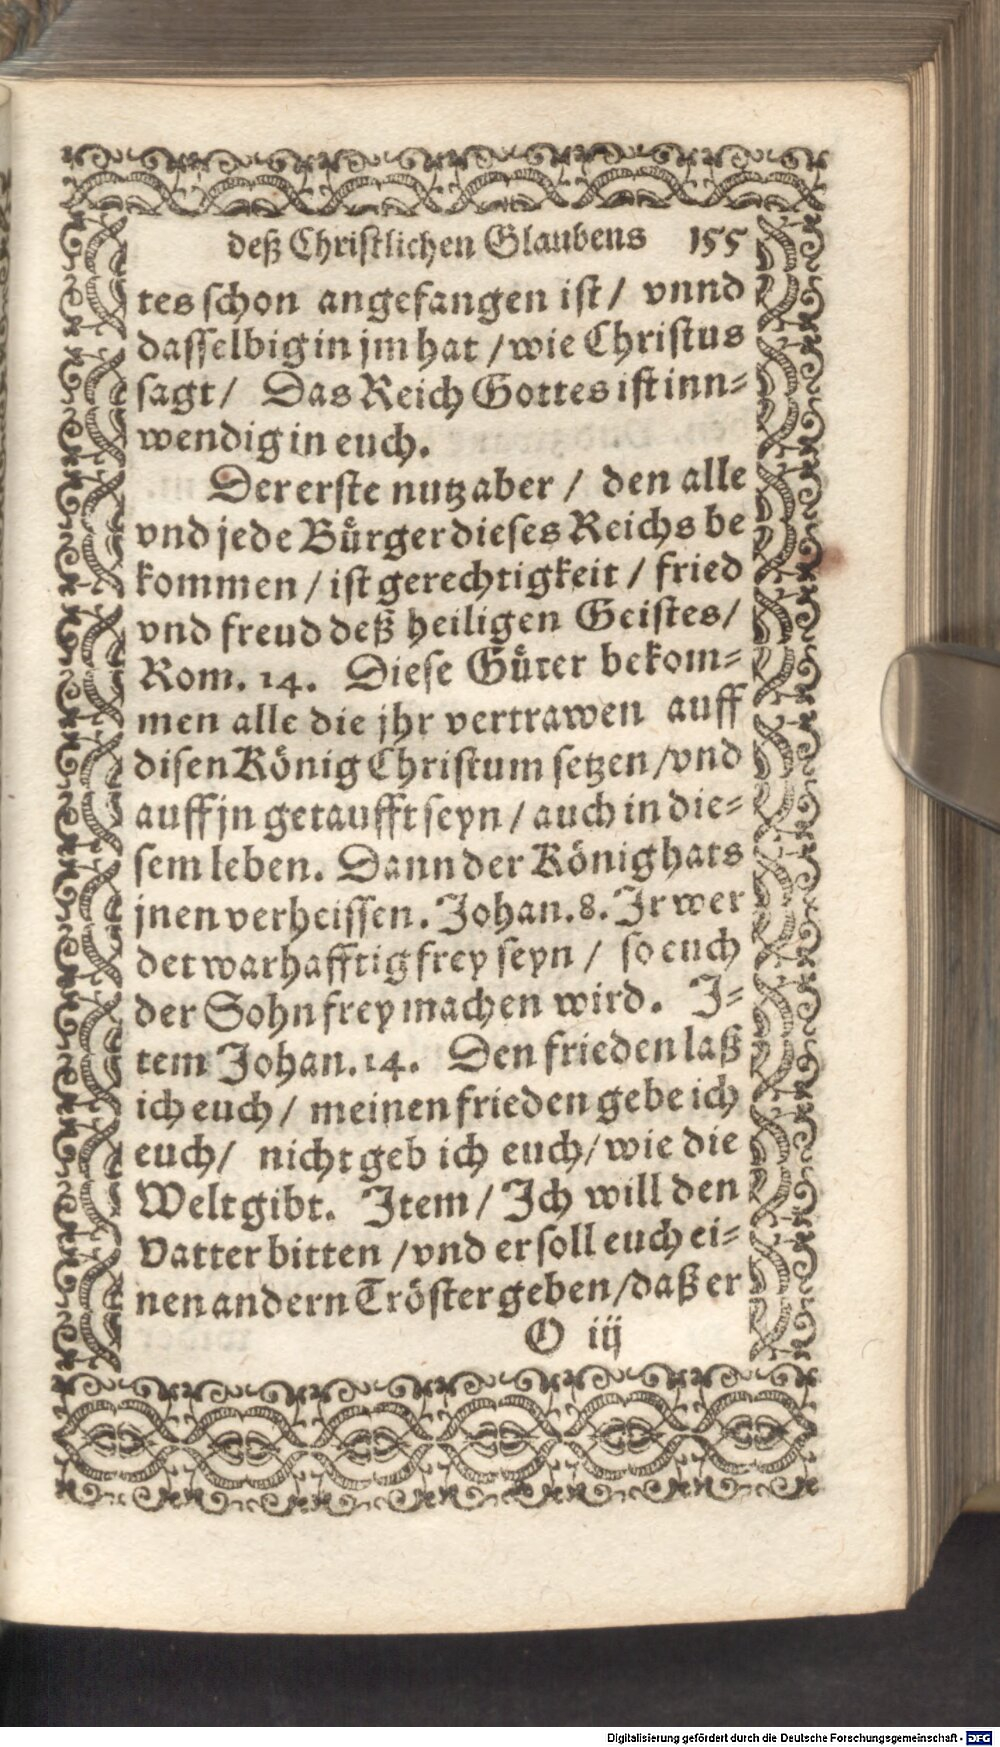 deß Christlichen Glaubens 155
tes schon angefangen ist / vnnd
dasselbig in jm hat / wie Christus
sagt / Das Reich Gottes ist inn⸗
wendig in euch.
Der erste nutz aber / den alle
vnd jede Bürger dieses Reichs be
kommen / ist gerechtigkeit / fried
vnd freud deß heiligen Geistes /
Rom. 14. Diese Güter bekom⸗
men alle die jhr vertrawen auff
disen König Christum setzen / vnd
auff jn getaufft seyn / auch in die⸗
sem leben. Dann der König hats
jnen verheissen. Johan. 8. Ir wer
det warhafftig frey seyn / so euch
der Sohn frey machen wird. I⸗
tem Johan. 14. Den frieden laß
ich euch / meinen frieden gebe ich
euch / nicht geb ich euch / wie die
Welt gibt. Item / Ich will den
Vatter bitten / vnd er soll euch ei⸗
nen andern Tröster geben / daß er
O iij
Digitalisierung gefördert durch die Deutsche Forschungsgemeinschaft - DFG